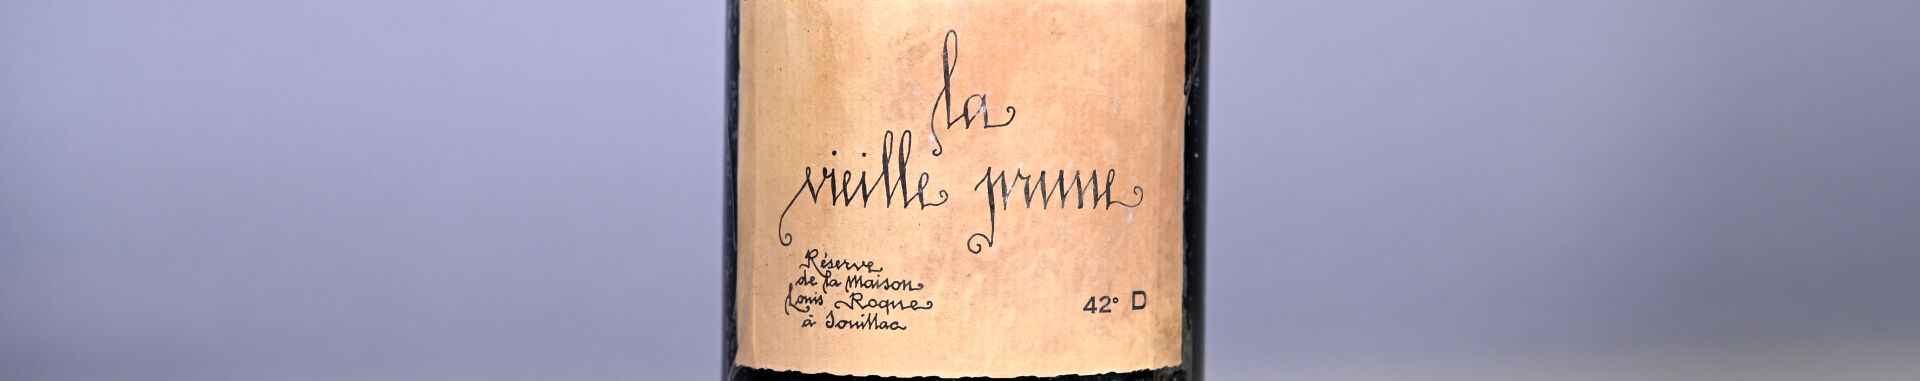 la
vieille prune
Réserve
de la Maison
Louis Roque
à Souillac
42° D